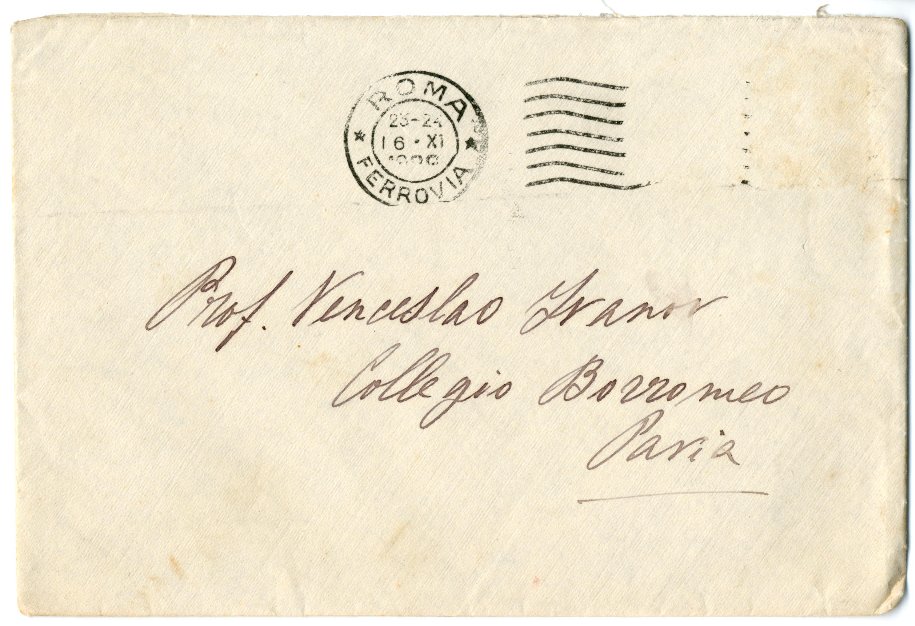 ROMA
23-24
16 · XI
FERROVIA
Prof. Venceslao Ivanov
Collegio Borromeo
Pavia